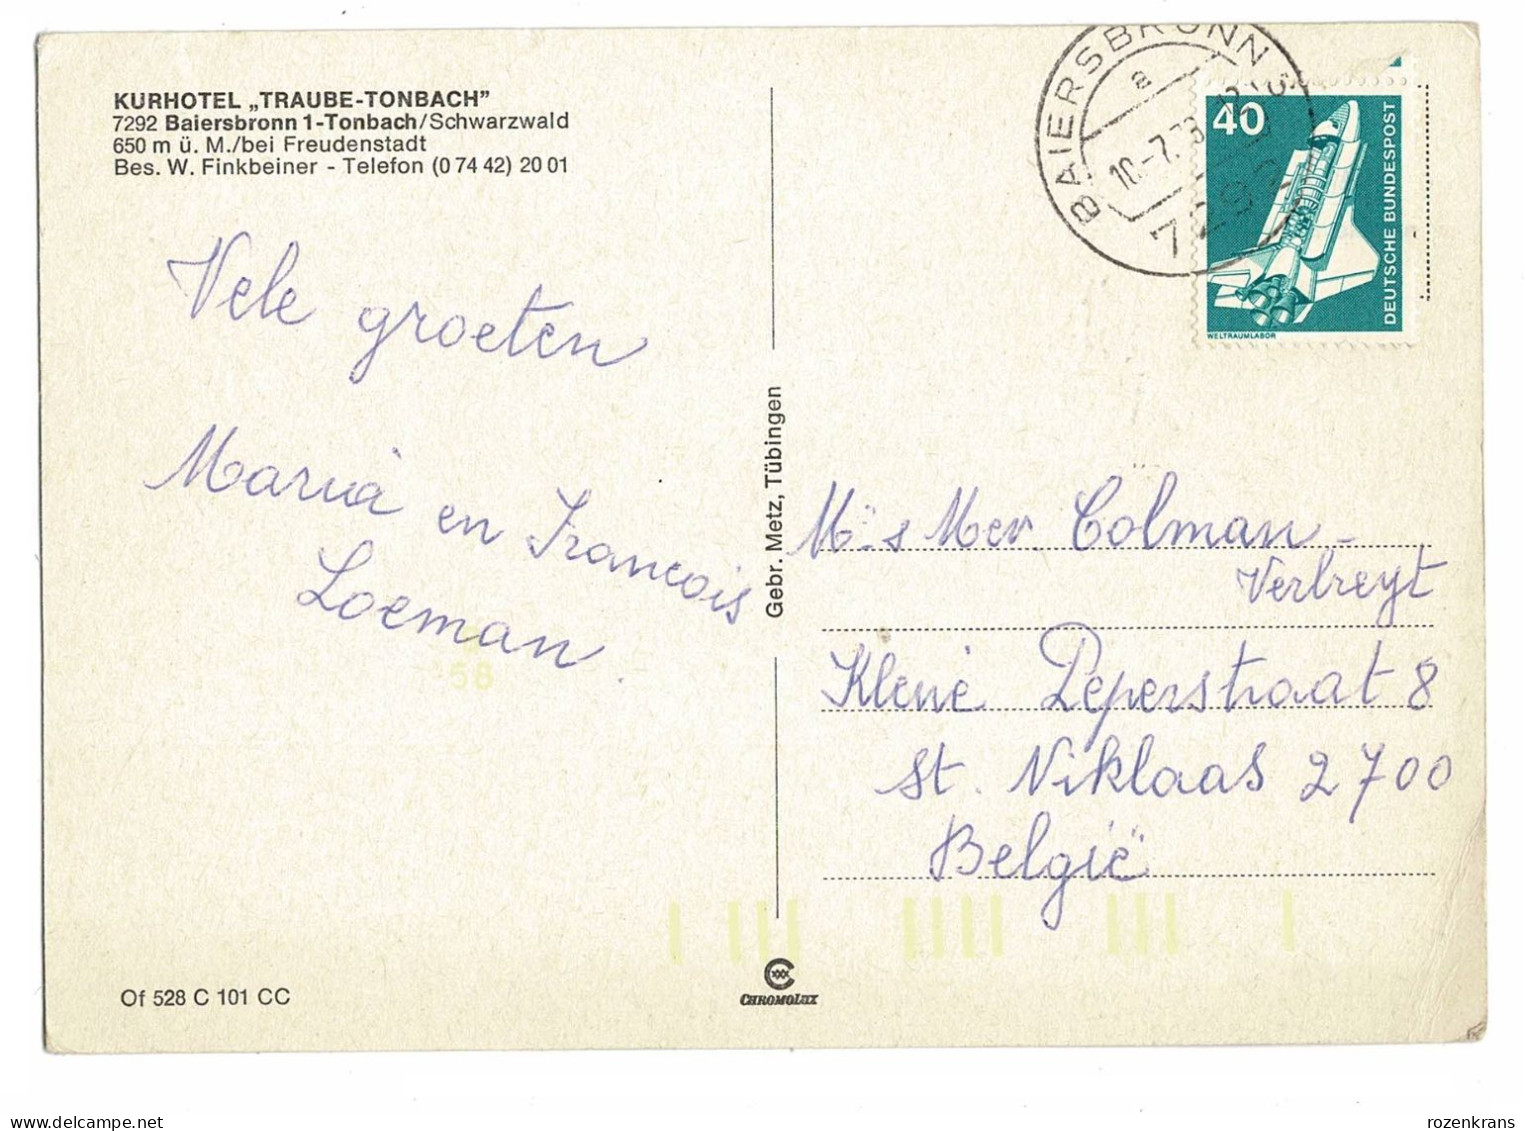 KURHOTEL „TRAUBE-TONBACH”
7292 Baiersbronn 1-Tonbach/Schwarzwald
650 m ü. M./bei Freudenstadt
Bes. W. Finkbeiner - Telefon (0 74 42) 20 01
Vele groeten
Maria en Francois
Loeman.
58
Of 528 C 101 CC
Gebr. Metz, Tübingen
CHROMOLUX
BAIERSBRONN
a
10.-7.78
7292
40
DEUTSCHE BUNDESPOST
WELTRAUMLABOR
Mev. Colman -
Verbreyt
Kleine Peperstraat 8
St. Niklaas 2700
België
rozenkrans